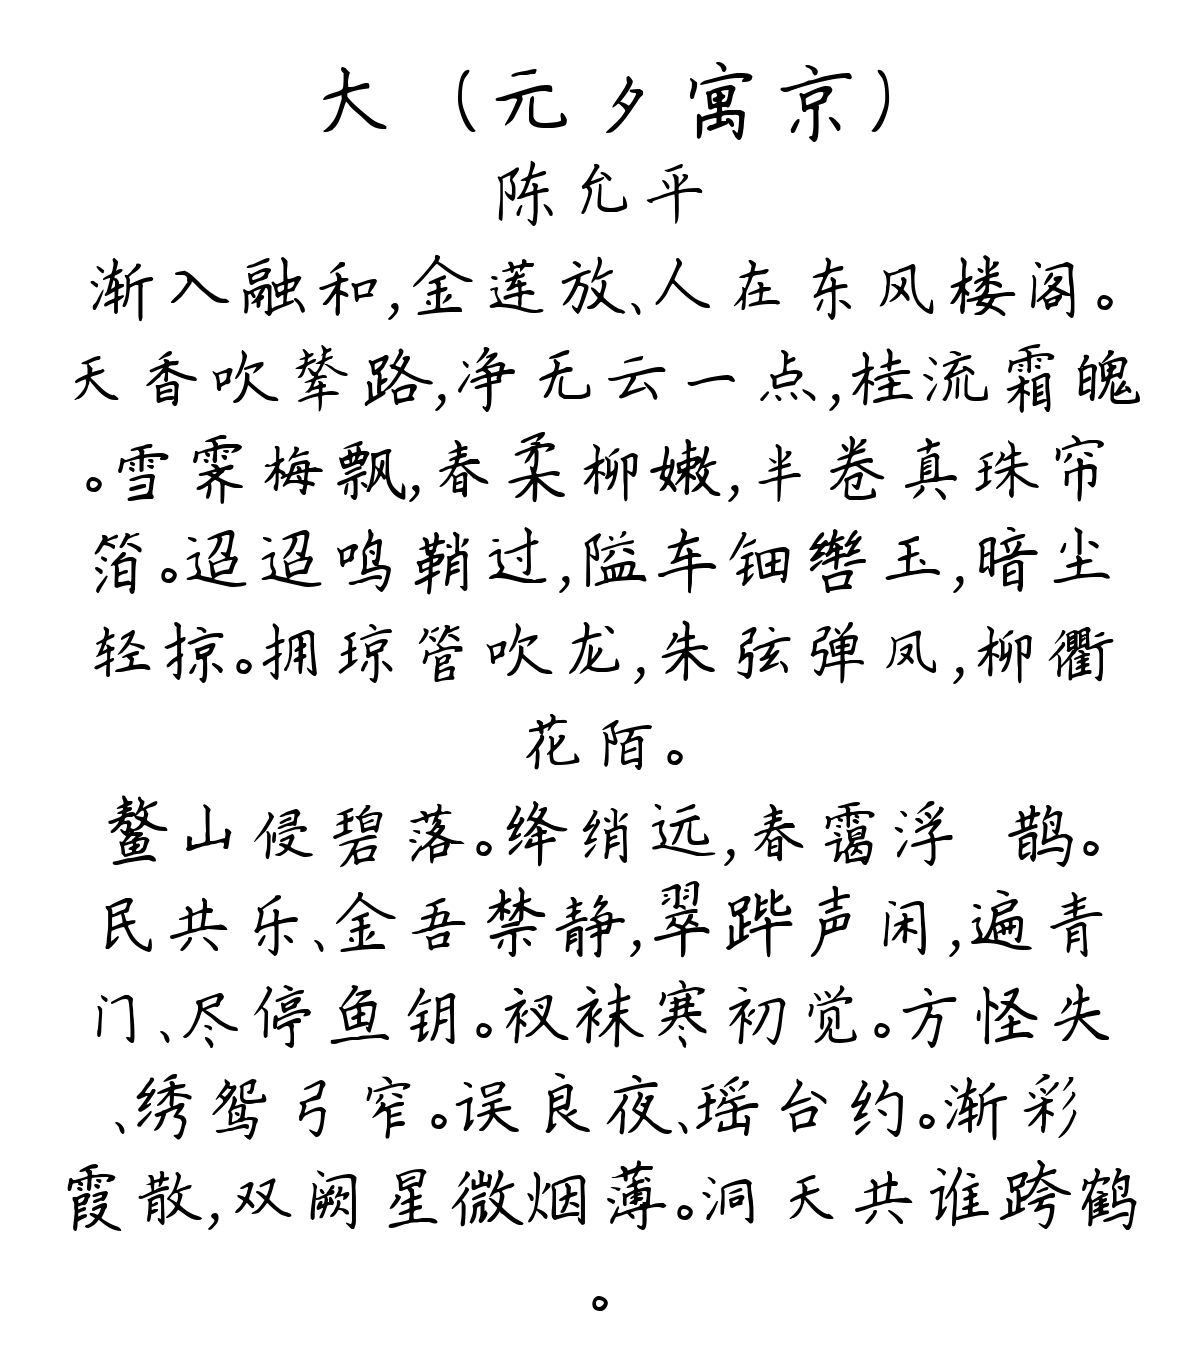 大 （元夕寓京）
陈允平
渐入融和,金莲放、人在东风楼阁。
天香吹辇路,净无云一点,桂流霜魄
。雪霁梅飘,春柔柳嫩,半卷真珠帘
箔。迢迢鸣鞘过,隘车钿辔玉,暗尘
轻掠。拥琼管吹龙,朱弦弹凤,柳衢
花陌。
鳌山侵碧落。绛绡远,春霭浮 鹊。
民共乐、金吾禁静,翠跸声闲,遍青
门、尽停鱼钥。衩袜寒初觉。方怪失
、绣鸳弓窄。误良夜、瑶台约。渐彩
霞散,双阙星微烟薄。洞天共谁跨鹤
。